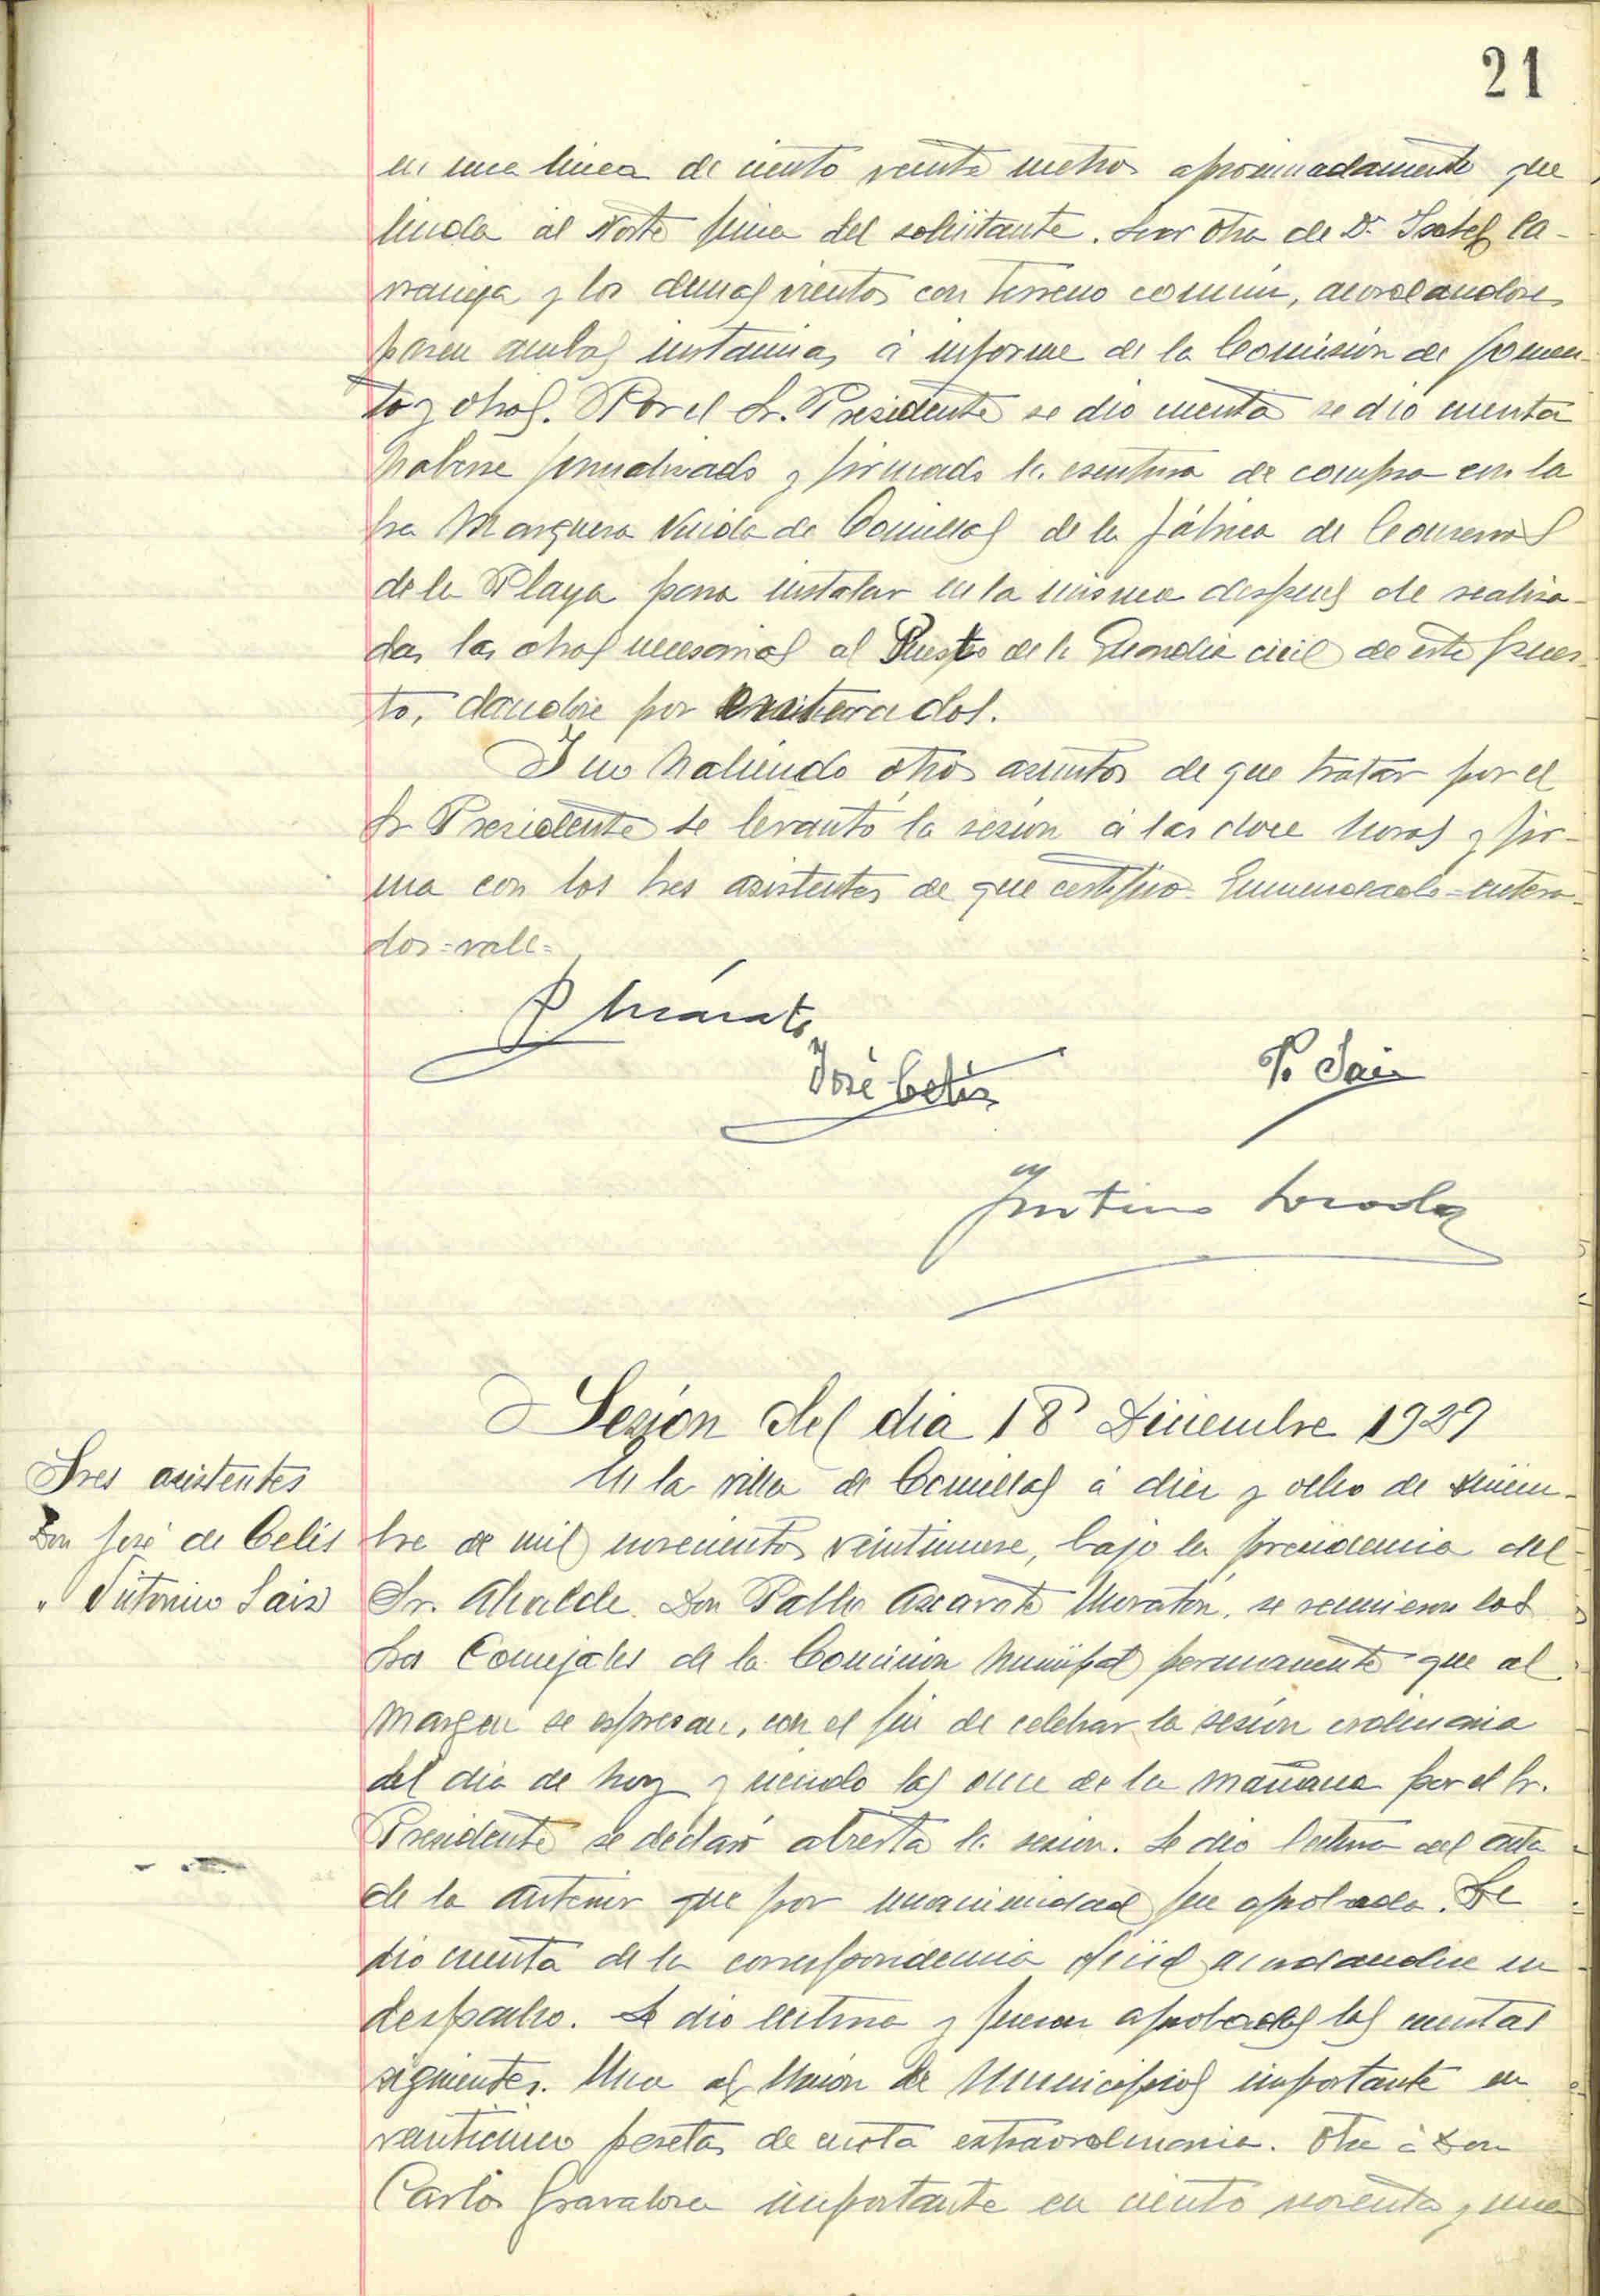 21
en una linea de ciento veinte metros aproximadamente que
linda al Norte finca del solicitante. Sur otra de Dª Isabel Ca-
y los demas vientos con terreno común, acordandose
pasen ambas instancias á informe de la Comisión de fomen-
to y obras. Por el Sr. Presidente se dio cuenta se dio cuenta
haberse y firmado la escritura de compra con la
Sra Marquesa Viuda de Comillas de la fábrica de Conservas
de la Playa para instalar en la misma despues de realiza-
das las obras necesarias al Puesto de la Guardia civil de este pues-
to, dandose por enterados.
Y no habiendo otros asuntos de que tratar por el
Sr Presidente se levantó la sesión á las doce horas y fir-
ma con los Sres asistentes de que certifico. Enmendado=entera-
dos=vale=
José Celis
P. Saiz
Sesión del dia 18 Diciembre 1929
Sres asistentes
Don José de Celis
" Antonino Saiz
En la villa de Comillas á diez y ocho de Diciem-
bre de mil novecientos veintinueve, bajo la presidencia del
Sr. Alcalde Don Pablo Azcarate Moratón, se reunieron los
Sres Concejales de la Comisión Municipal permanente que al
margen se espresan, con el fin de celebrar la sesión ordinaria
del dia de hoy y siendo las once de la mañana por el Sr.
Presidente se declaró abierta la sesion. Se dio lectura del acta
de la anterior que por unanimidad fue aprobada. Se
dio cuenta de la correspondencia oficial acordandose su
despacho. Se dio lectura y fueron aprobadas las cuentas
siguientes. Una al Unión de Municipios importante en
veinticinco pesetas de cuota extraordinaria. Otra á Don
Carlos importante en ciento noventa y una